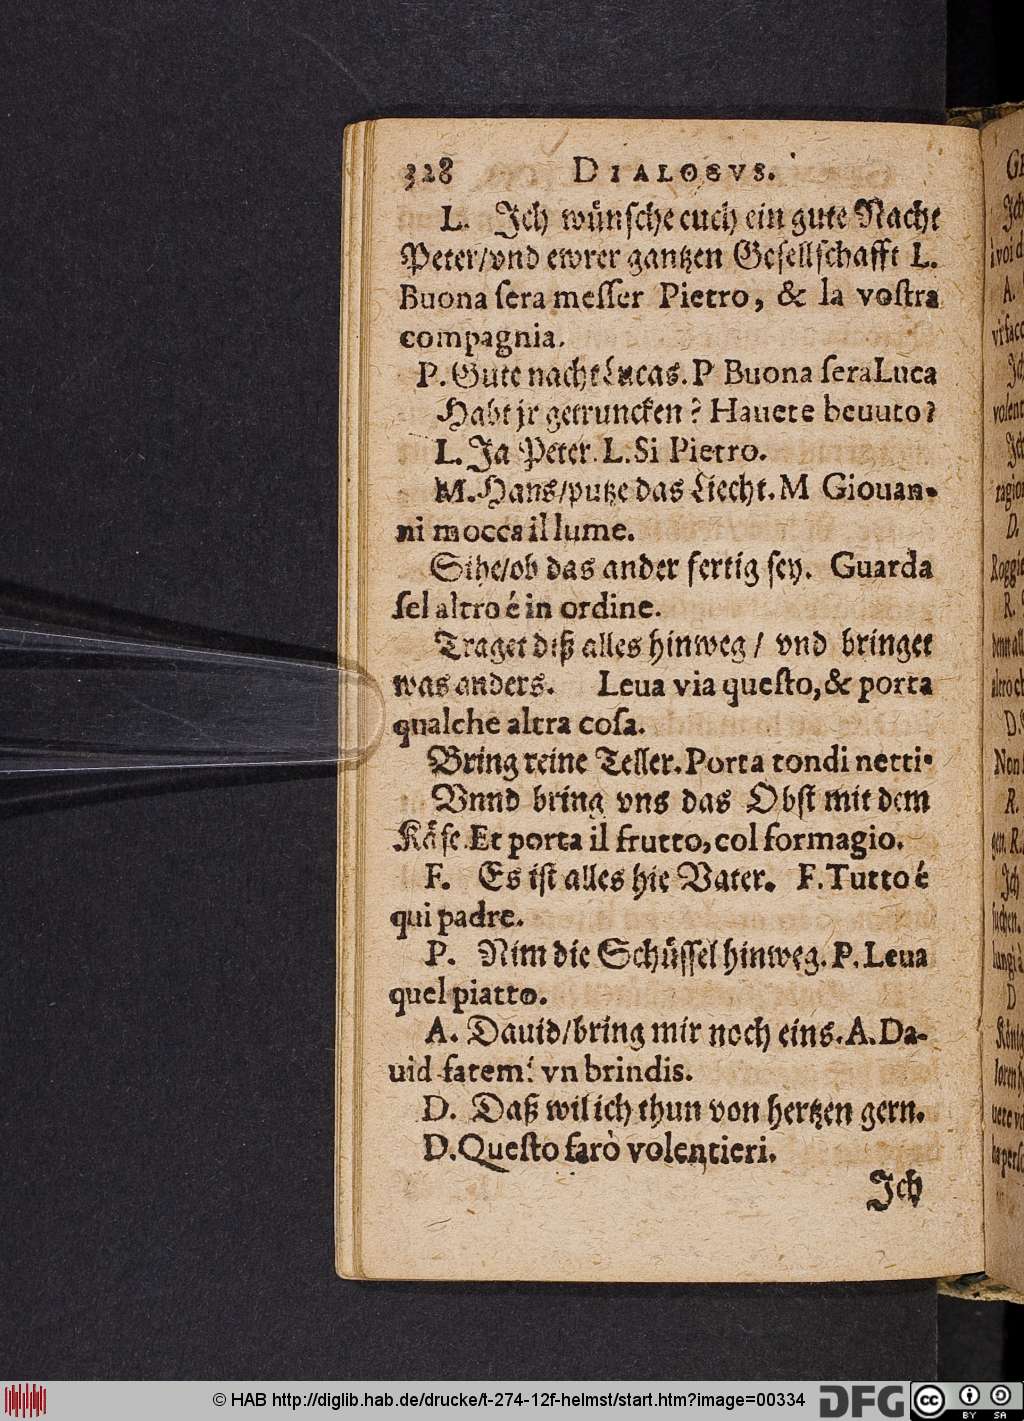 328 DIALOGVS.
L. Jch wünsche euch ein gute Nacht
Peter/vnd ewrer gantzen Gesellschafft L.
Buona ſera meſſer Pietro, & la voſtra
compagnia.
P. Gute nacht Lucas. P Buona ſera Luca
Habt jr getruncken? Hauete beuuto?
L. Ja Peter. L. Si Pietro.
M. Hans/putze das Liecht. M Giouan-
ni mocca il lume.
Sihe/ob das ander fertig sey. Guarda
ſel altro é in ordine.
Traget diß alles hinweg/ vnd bringet
was anders. Leua via queſto, & porta
qualche altra coſa.
Bring reine Teller. Porta tondi netti.
Vnnd bring vns das Obst mit dem
Käse. Et porta il frutto, col formagio.
F. Es ist alles hie Vater. F. Tutto é
qui padre.
P. Nim die Schüssel hinweg. P. Leua
quel piatto.
A. Dauid/bring mir noch eins. A. Da-
uid fatemi vn brindis.
D. Daß wil ich thun von hertzen gern.
D. Queſto farò volentieri.
Jch
© HAB http://diglib.hab.de/drucke/t-274-12f-helmst/start.htm?image=00334 DFG cc BY SA